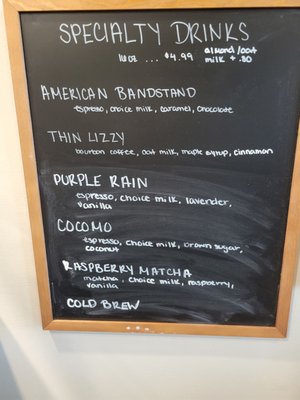 SPECIALTY DRINKS
16 OZ ... $4.99 almond/oat
milk + .80
AMERICAN BANDSTAND
espresso, choice milk, caramel, chocolate
THIN LIZZY
bourbon coffee, oat milk, maple syrup, cinnamon
PURPLE RAIN
espresso, choice milk, lavender,
vanilla
COCOMO
espresso, choice milk, brown sugar,
coconut
RASPBERRY MATCHA
matcha, choice milk, raspberry,
vanilla
COLD BREW